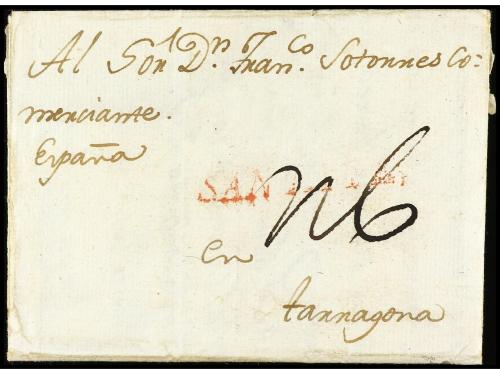 Al Sor. Dn. Franco. Sotorres Co=
merciante.
España
SAN
n6
En
tarragona